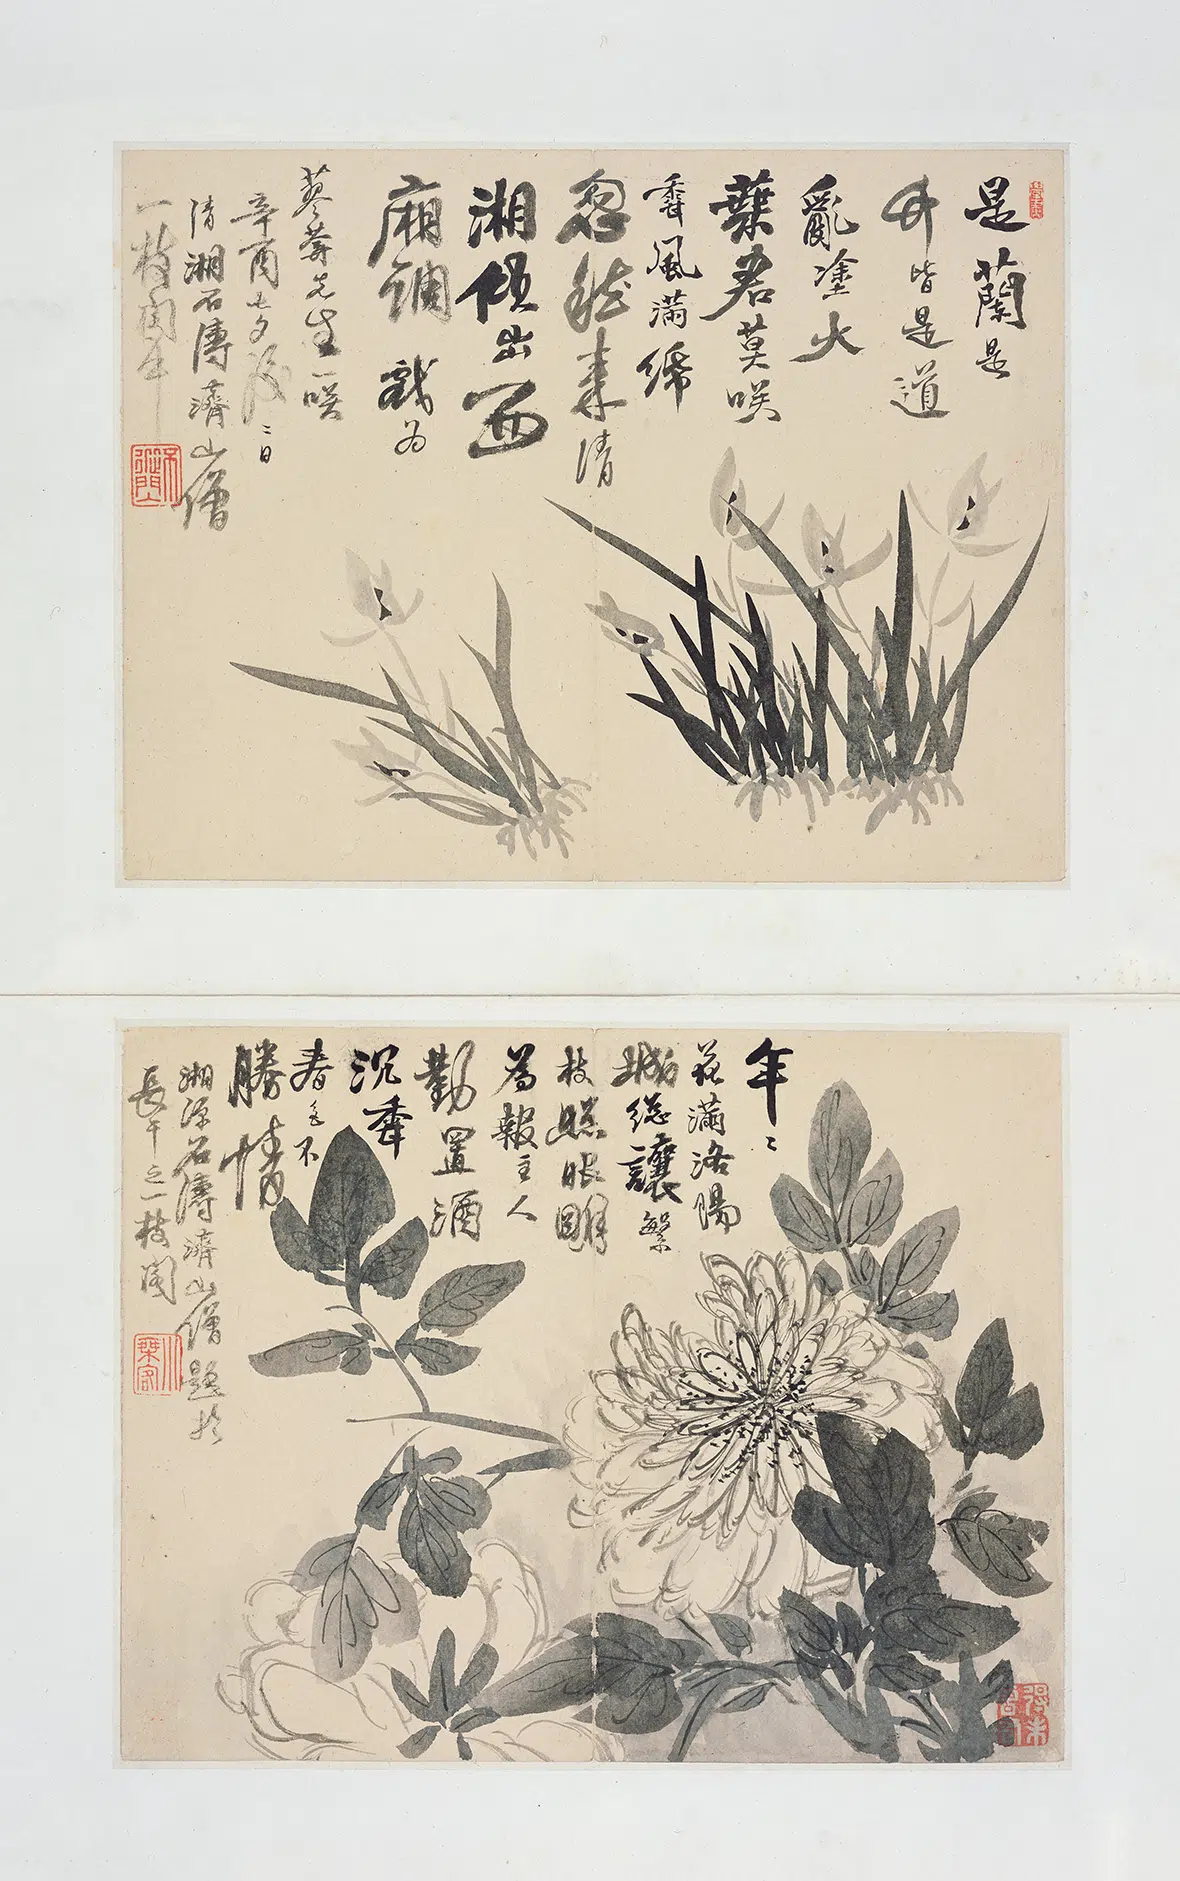 是蘭是
竹皆是道
亂塗大
葉君莫咲
香風滿紙
忽然來清
湘傾出西
廂調戲为
蒼莽先生一咲
辛酉七夕後二日
清湘石濤濟山僧
一枝閣中
年〻
花滿洛陽
城總讓繁
枝照眼明
為報主人
勤置酒
沉香
春色不
勝情
湘源石濤濟山僧題於
長干之一枝閣